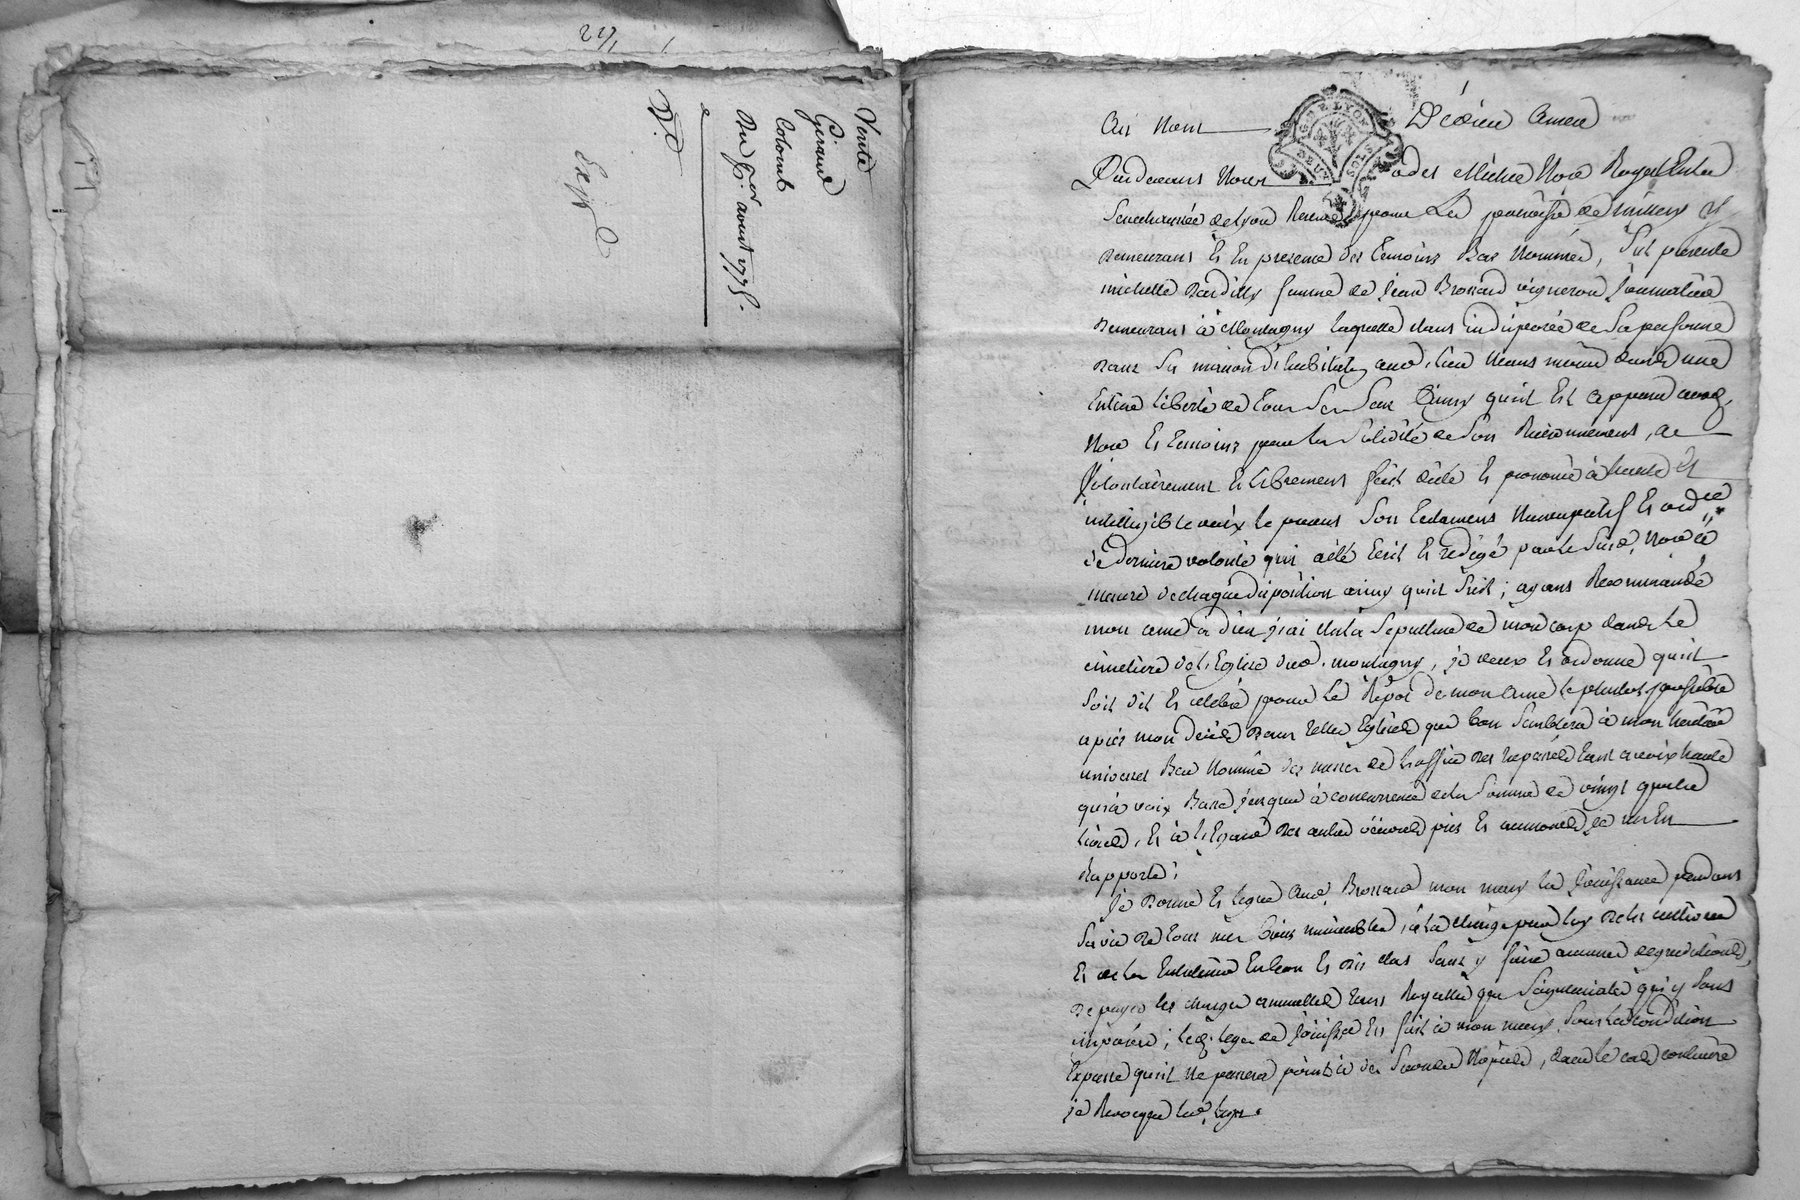 Vente
Giraud
Colomb
Du 6.er avoust 1775.
Exp.d
Au Nom De dieu Amen
Pardevant Nous
GDE LYON
DEUX SOLS
Nore Royal En la
Senechaussée de Lyon Reservé pour La parroisse de millery y
demeurant Et En presence des Temoins Bas Nommés, fut presente
michelle Bardilly femme de Jean Brossard vigneron Journalier
demeurant à Montagny laquelle étant indisposée de sa personne
dans sa maison d'habitation aud. lieu Neans moins dans une
Entiere liberté de tous ses sens Ainsy qu'il Est apparu auxd.
Nore Et temoins par la solidité de son Raisonnement, de
Volontairement Et librement fait dicté Et prononcé à haute Et
intelligible voix le present son testament Nuncupatif Et ord.ce
de derniere volonté qui a été Ecrit Et redigé par le susd. Nore à
mesure de chaque disposition ainsy qu'il suit; ayant Recommandé
mon ame à dieu j'ai élu la sepulture de mon corp dans Le
cimetiere de l'Eglise dud. montagny, je veux Et ordonne qu'il
soit dit Et celebré pour Le Repos de mon ame le plutot possible
après mon decéd dans telles Eglises que bon semblera à mon heritier
universel Bas Nommé des messes de l'office des trepassés tant à voix haute
qu'à voix Basse jusques à concurrence de la somme de vingt quatre
livres, Et à l'Egard des autres oeuvres pies Et aumones je m'En
Rapporte;
Je Donne Et legue Aud. Brossard mon mary la Jouissance pendant
sa vie de tous mes biens immeubles, à la charge par luy de les cultiver
Et de les Entretenir En bon Et dû etat sans y faire aucunes degradations,
de payer les charges annuelles tant Royalles que seigneuriales qui y sont
imposées; led. legs de Jouissce Est fait à mon mary sous la condition
Expresse qu'il ne passera point à de secondes Nopces, dans le cas contraire
je Revoque led. legs.